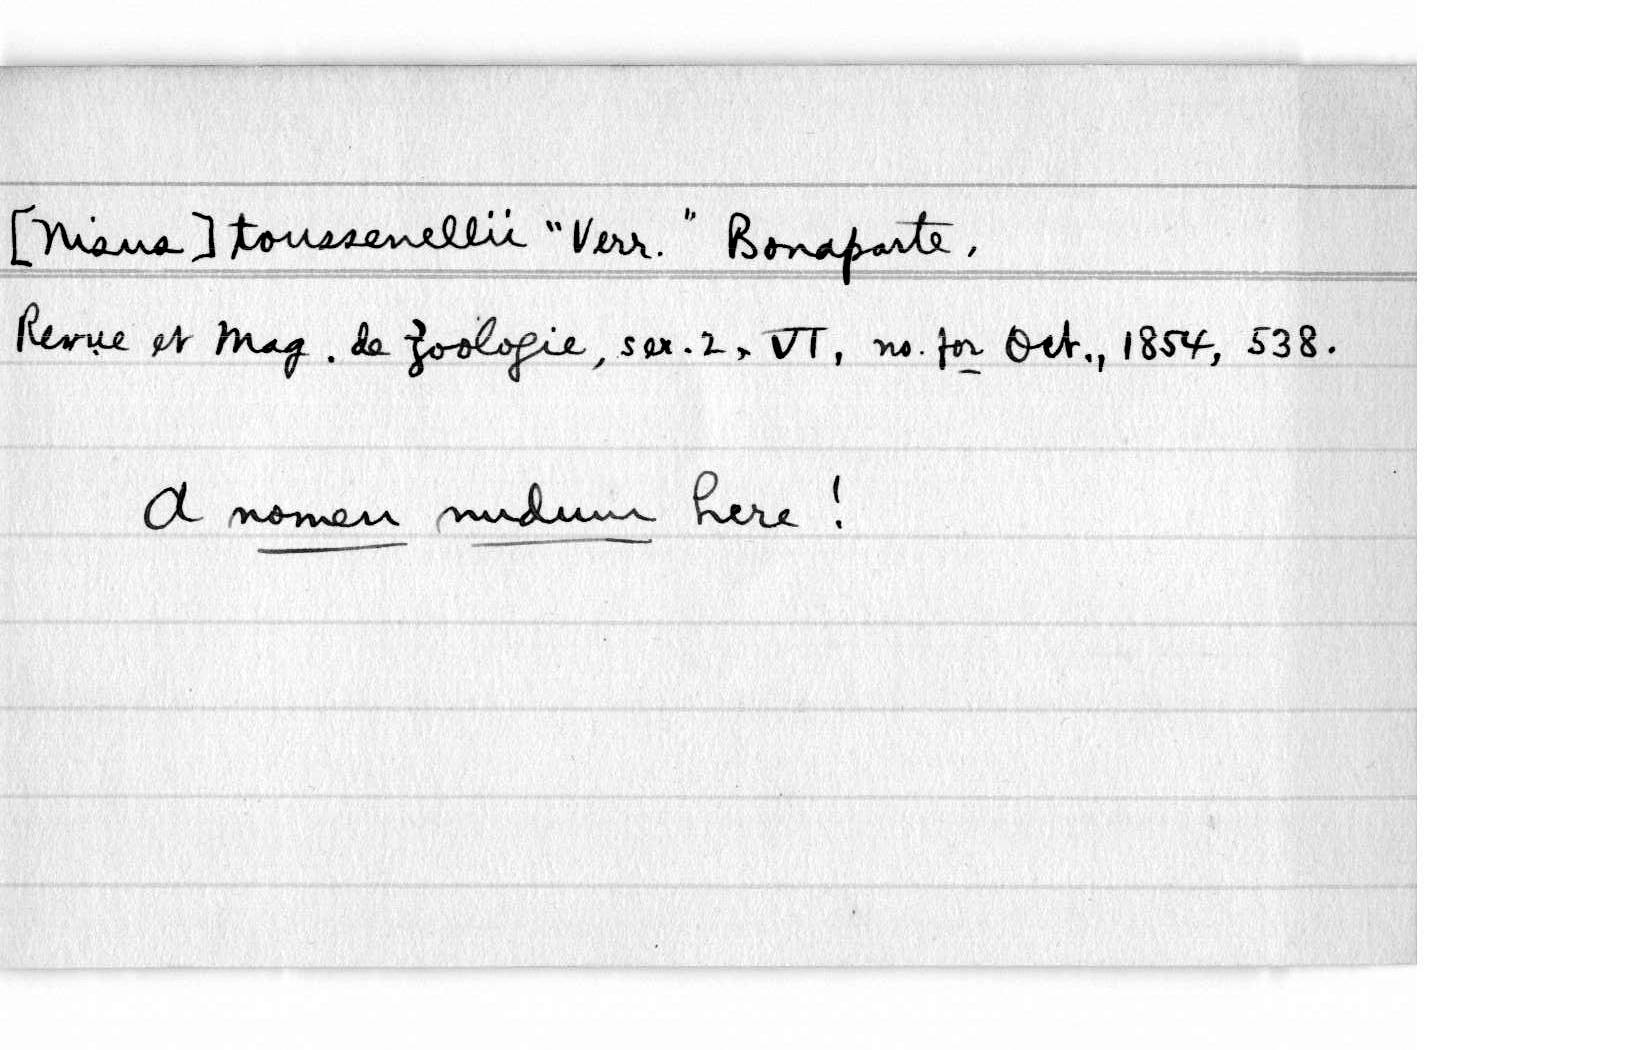 [Nisus] toussenellii "Verr." Bonaparte,
Revue et Mag. de Zoologie, ser. 2, VI, no. for Oct., 1854, 538.
A nomen nudum here!